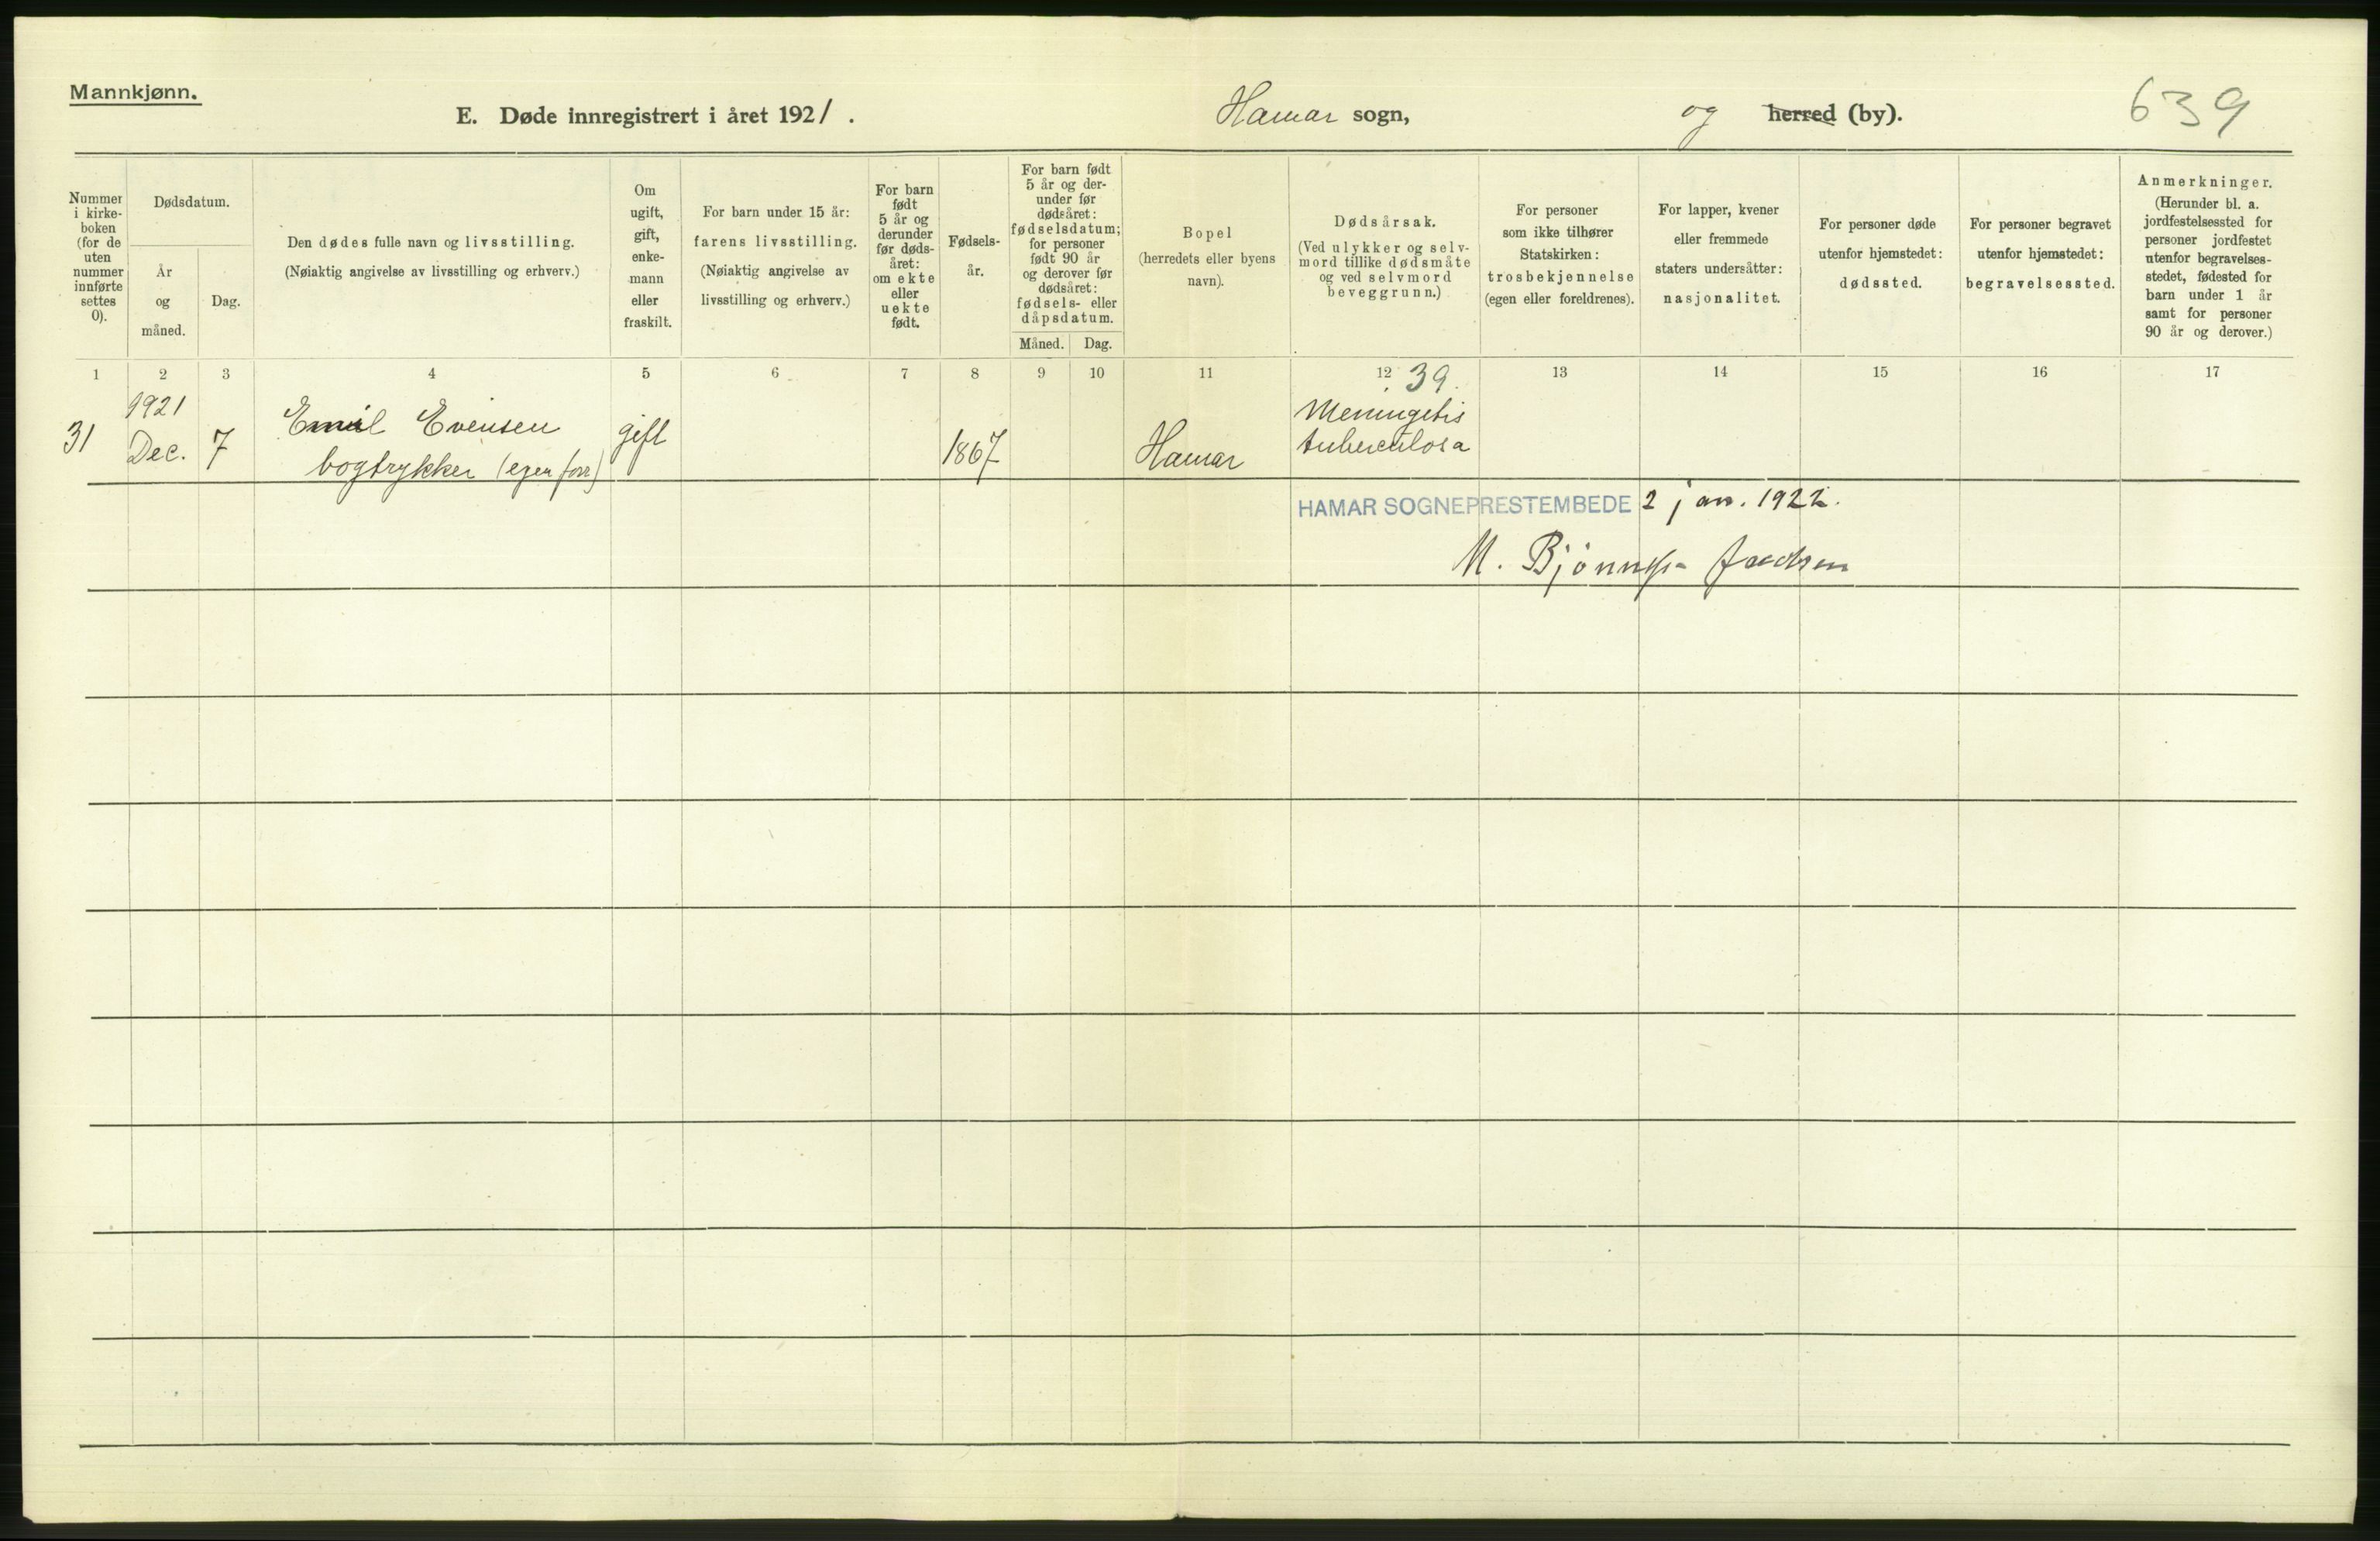 Mannkjønn.
E. Døde innregistrert i året 1921.
Hamar sogn,
og herred (by).
639
Nummer
i kirke-
boken
(for de
uten
nummer
innførte
settes
0).
Dødsdatum.
År
og
måned.
Dag.
Den dødes fulle navn og livsstilling.
(Nøiaktig angivelse av livsstilling og erhverv.)
Om
ugift,
gift,
enke-
mann
eller
fraskilt.
For barn under 15 år:
farens livsstilling.
(Nøiaktig angivelse av
livsstilling og erhverv.)
For barn
født
5 år og
derunder
før døds-
året:
om ekte
eller
uekte
født.
Fødsels-
år.
For barn født
5 år og der-
under før
dødsåret:
fødselsdatum;
for personer
født 90 år
og derover før
dødsåret:
fødsels- eller
dåpsdatum.
Måned.
Dag.
Bopel
(herredets eller byens
navn).
Dødsårsak.
(Ved ulykker og selv-
mord tillike dødsmåte
og ved selvmord
beveggrunn.)
For personer
som ikke tilhører
Statskirken:
trosbekjennelse
(egen eller foreldrenes).
For lapper, kvener
eller fremmede
staters undersåtter:
nasjonalitet.
For personer døde
utenfor hjemstedet:
dødssted.
For personer begravet
utenfor hjemstedet:
begravelsessted.
Anmerkninger.
(Herunder bl. a.
jordfestelsessted for
personer jordfestet
utenfor begravelses-
stedet, fødested for
barn under 1 år
samt for personer
90 år og derover.)
1 2 3 4 5 6 7 8 9 10 11 12 13 14 15 16 17
39.
31
1921
Dec. 7
Emil Evensen
bogtrykker (egen forr)
gift
1867
Hamar
Meningitis
tuberculosa
HAMAR SOGNEPRESTEMBEDE 2 jan. 1922.
M.